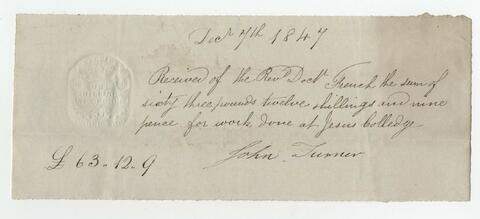 Decr 7th 1847
Received of the Revd Doctr French the sum of
sixty three pounds twelve shillings and nine
pence for work done at Jesus Colledge
£ 63-12-9
John Turner